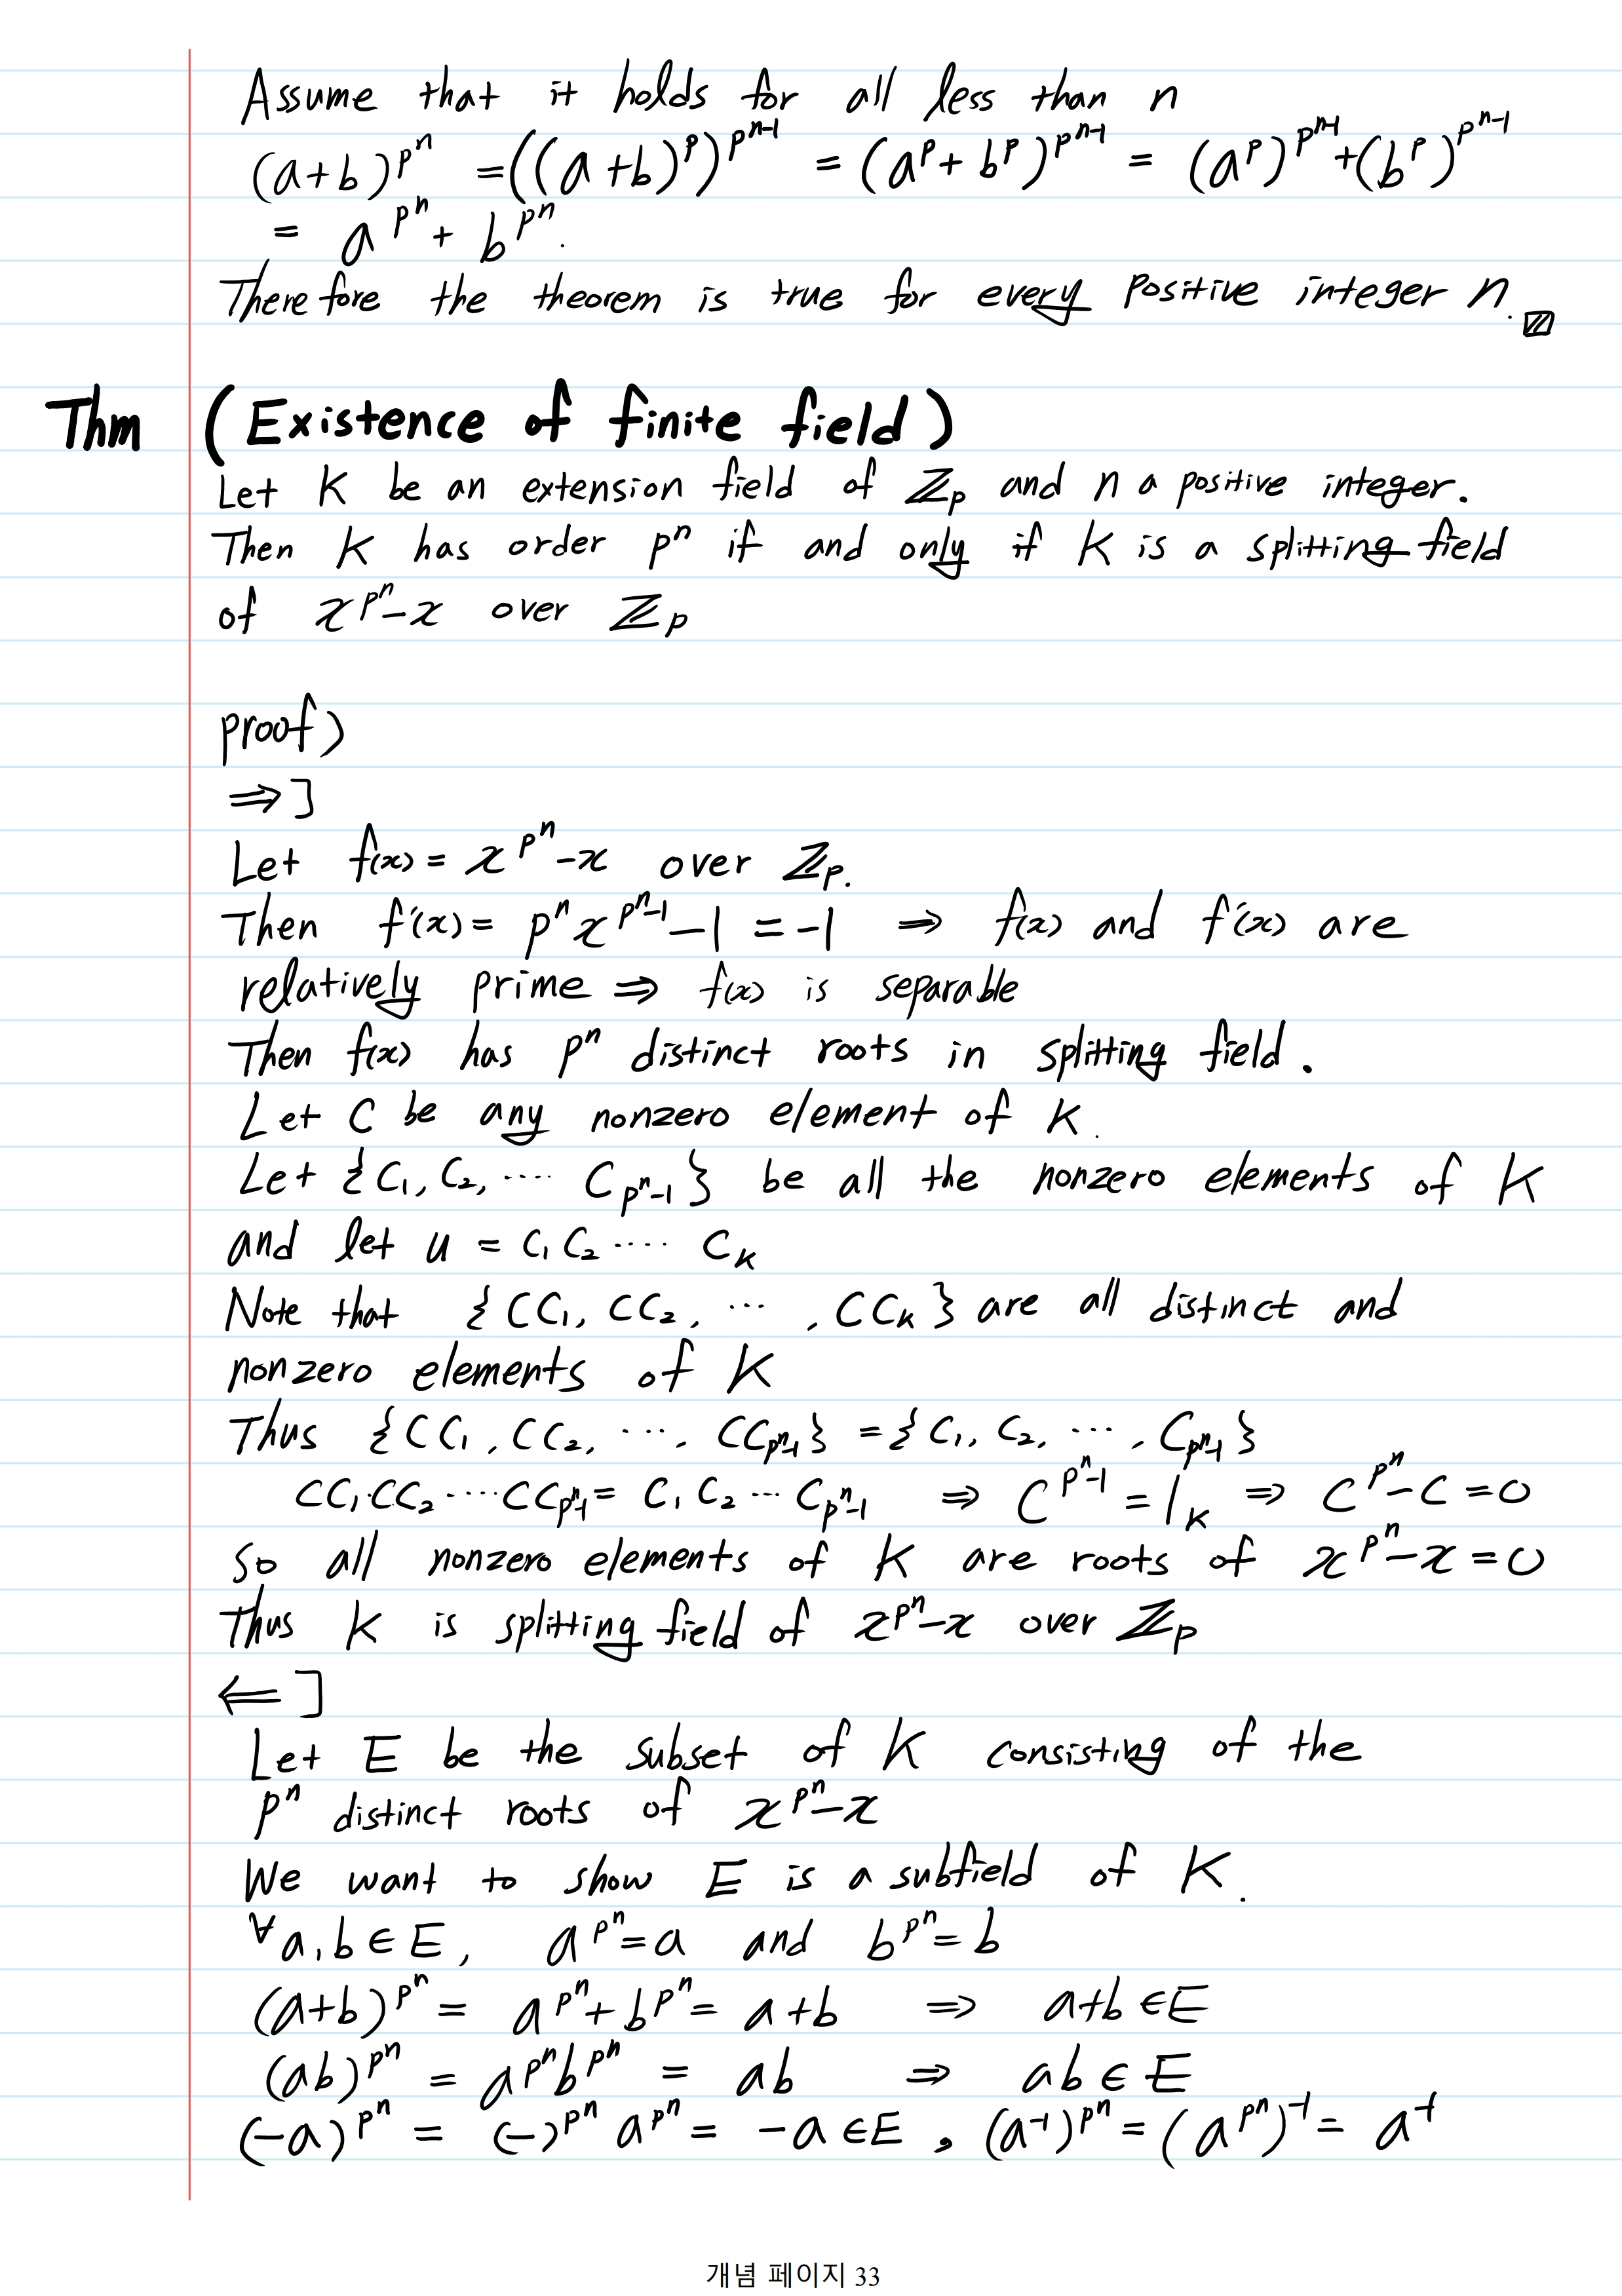 Assume that it holds for all less than n
(a+b)^{p^n} = ((a+b)^p)^{p^{n-1}} = (a^p + b^p)^{p^{n-1}} = (a^p)^{p^{n-1}} + (b^p)^{p^{n-1}}
= a^{p^n} + b^{p^n}.
Therefore the theorem is true for every positive integer n. ▨
Thm (Existence of finite field)
Let K be an extension field of ℤ_p and n a positive integer.
Then K has order p^n if and only if K is a splitting field
of x^{p^n} - x over ℤ_p
proof)
⇒]
Let f(x) = x^{p^n} - x over ℤ_p.
Then f'(x) = p^n x^{p^n-1} - 1 = -1 ⇒ f(x) and f'(x) are
relatively prime ⇒ f(x) is separable
Then f(x) has p^n distinct roots in splitting field.
Let C be any nonzero element of K.
Let {C_1, C_2, ···· C_{p^n-1}} be all the nonzero elements of K
and let u = C_1 C_2 ···· C_k
Note that {CC_1, CC_2, ···, CC_k} are all distinct and
nonzero elements of K
Thus {CC_1, CC_2, ···, CC_{p^n-1}} = {C_1, C_2, ···, C_{p^n-1}}
CC_1·CC_2 ···· CC_{p^n-1} = C_1 C_2 ··· C_{p^n-1} ⇒ C^{p^n-1} = 1_K ⇒ C^{p^n} - C = 0
So all nonzero elements of K are roots of x^{p^n} - x = 0
Thus K is splitting field of x^{p^n} - x over ℤ_p
⇐]
Let E be the subset of K consisting of the
p^n distinct roots of x^{p^n} - x
We want to show E is a subfield of K.
∀a, b ∈ E, a^{p^n} = a and b^{p^n} = b
(a+b)^{p^n} = a^{p^n} + b^{p^n} = a+b ⇒ a+b ∈ E
(ab)^{p^n} = a^{p^n} b^{p^n} = ab ⇒ ab ∈ E
(-a)^{p^n} = (-)^{p^n} a^{p^n} = -a ∈ E, (a^{-1})^{p^n} = (a^{p^n})^{-1} = a^{-1}
개념 페이지 33